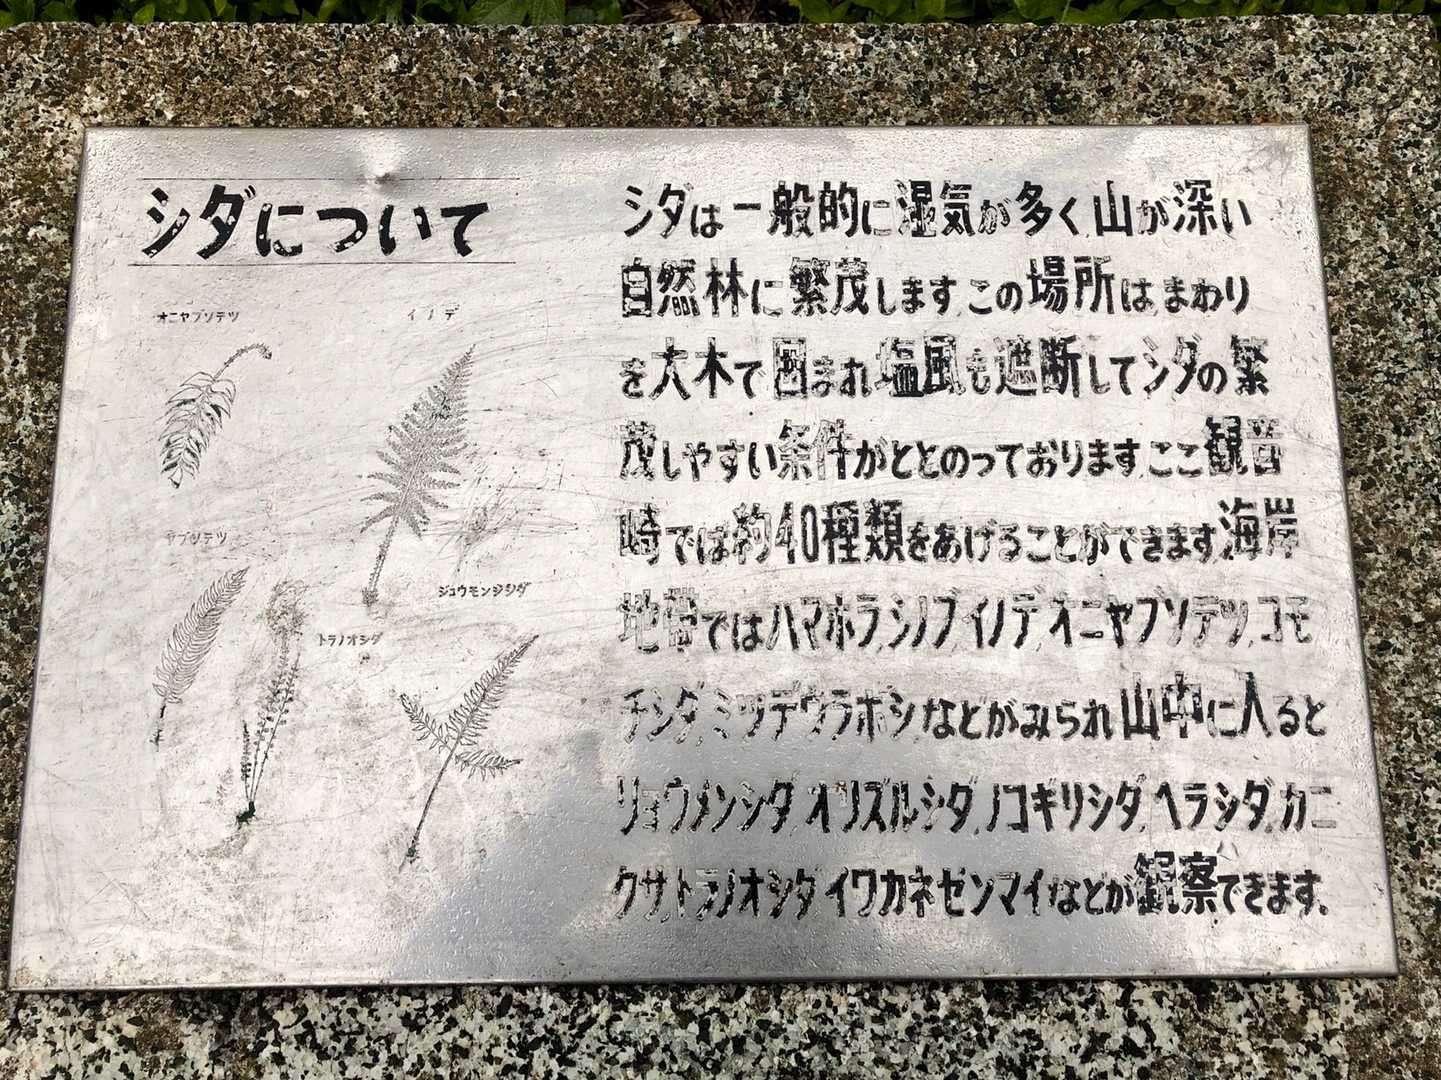 シダについて
オニヤブソテツ
イノデ
ヤブソテツ
ジュウモンジシダ
トラノオシダ
シダは一般的に湿気が多く、山が深い
自然林に繁茂します。この場所はまわり
を大木で囲まれ塩風も遮断してシダの繁
茂しやすい条件がととのっております。ここ観音
崎では約40種類をあげることができます。海岸
地帯ではハマホラシノブ、イノデ、オニヤブソテツ、コモ
チシダ、ミツデウラボシなどがみられ山中に入ると
リョウメンシダ、オリズルシダ、ノコギリシダ、ヘラシダ、カニ
クサ、トラノオシダ、イワカネゼンマイなどが観察できます。